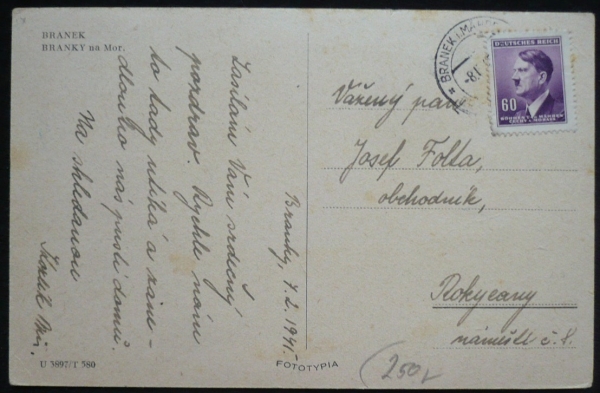 BRANEK
BRANKY na Mor.
Branky, 7.2.1941.
Zasílám Vám srdečný
pozdrav. Rychle nám
to tady utíká a zane-
dlouho nás pustí domů.
Na shledanou
U 3897/T 380
FOTOTYPIA
BRANEK
-8.
DEUTSCHES REICH
60
BÖHMEN UND MÄHREN
ČECHY A MORAVA
Vážený pan
Josef Folta,
obchodník,
Rokycany
náměstí č. 8.
250,-